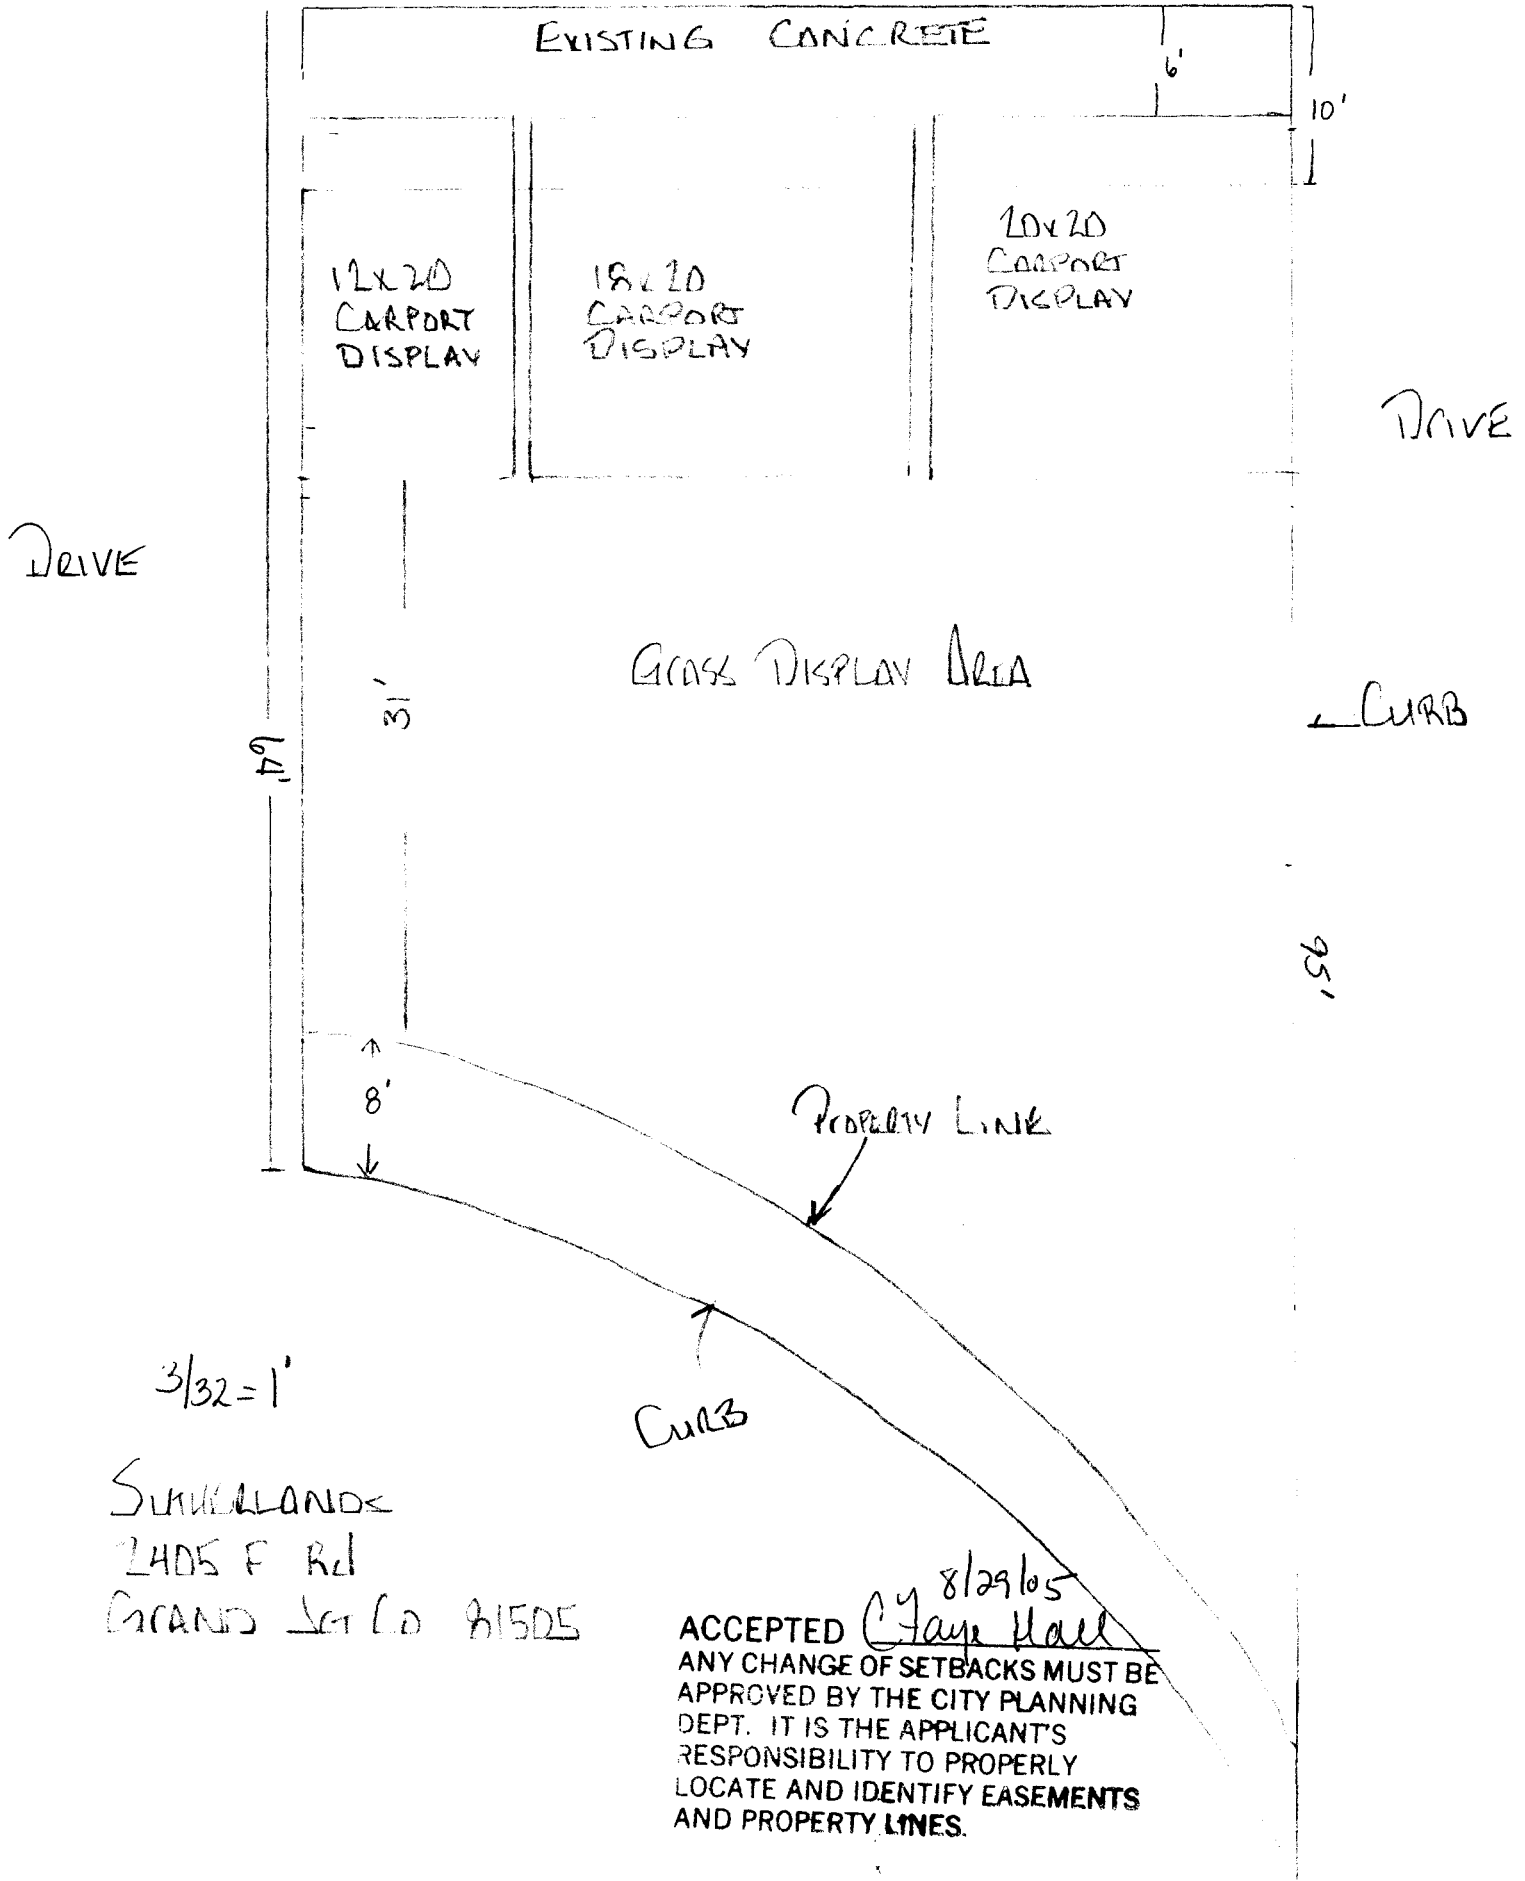 EXISTING CONCRETE
6'
10'
12X20
CARPORT
DISPLAY
18x20
CARPORT
DISPLAY
20x20
CARPORT
DISPLAY
DRIVE
DRIVE
31'
GRASS DISPLAY AREA
CURB
64'
95'
8'
PROPERTY LINE
3/32=1'
CURB
SUTHERLANDS
2405 F Rd
GRAND JCT CO 81505
8/29/05
ACCEPTED C Faye Hall
ANY CHANGE OF SETBACKS MUST BE
APPROVED BY THE CITY PLANNING
DEPT. IT IS THE APPLICANT'S
RESPONSIBILITY TO PROPERLY
LOCATE AND IDENTIFY EASEMENTS
AND PROPERTY LINES.